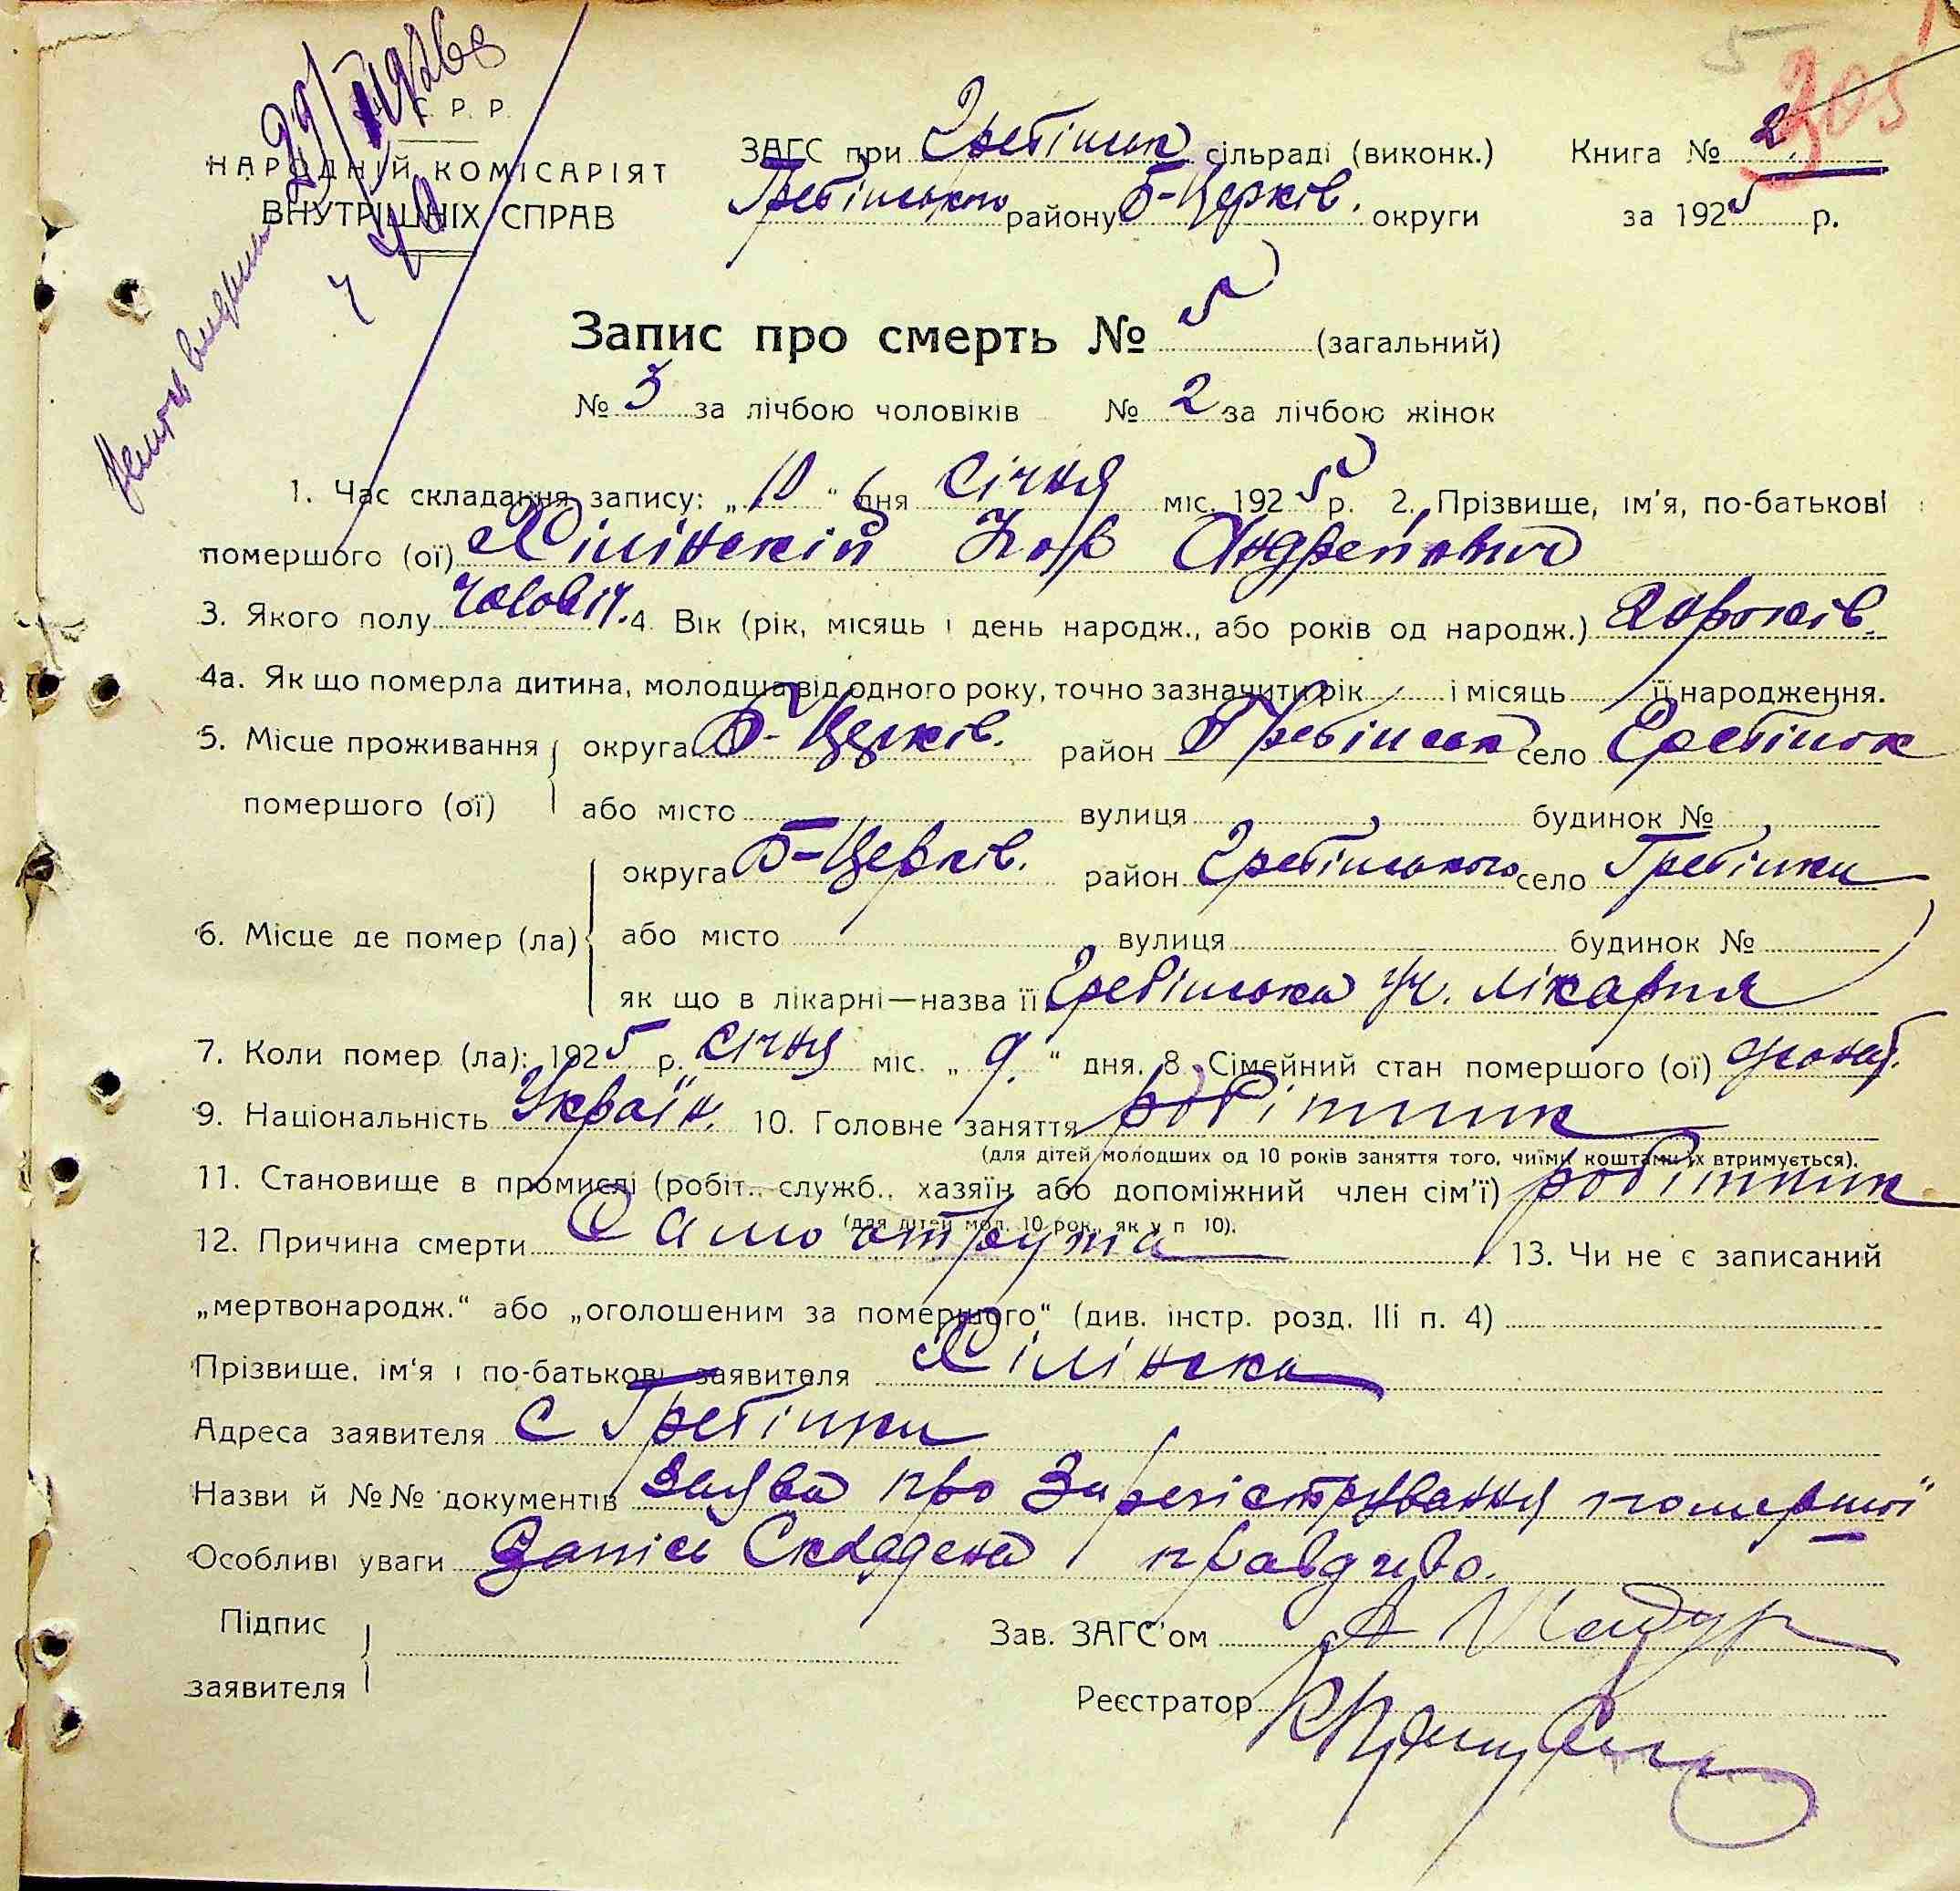 5
205
29/II 1926
С. Р. Р.
НАРОДНІЙ КОМІСАРІЯТ
ВНУТРІШНІХ СПРАВ
ЗАГС при Гребінськ сільраді (виконк.) Книга № 2
Гребінського району Б-Церків. округи за 1925 р.
Запис про смерть № 5 (загальний)
№ 3 за лічбою чоловіків № 2 за лічбою жінок
1. Час складання запису: „10“ дня Січня міс. 1925 р. 2. Прізвище, ім'я, по-батькові
помершого (ої) Хілінскій Андреєвич
3. Якого полу чоловіч. 4. Вік (рік, місяць і день народж., або років од народж.) 20 років.
4а. Як що померла дитина, молодша від одного року, точно зазначити рік і місяць її народження.
5. Місце проживання округа Б-Церків. район Гребінськ село Гребінок
помершого (ої) або місто вулиця будинок №
округа Б-Церків. район Гребінського село Гребінки
6. Місце де помер (ла) або місто вулиця будинок №
як що в лікарні—назва її Гребінська уч. лікарня
7. Коли помер (ла): 1925 р. січня міс. „9.“ дня. 8. Сімейний стан помершого (ої) жонат.
9. Національність Україн. 10. Головне заняття робітник
(для дітей молодших од 10 років заняття того, чиїми коштами їх втримується).
11. Становище в промислі (робіт., служб., хазяїн або допоміжний член сім'ї) робітник
(для дітей мол. 10 рок., як у п 10).
12. Причина смерти Само отрута 13. Чи не є записаний
„мертвонародж.“ або „оголошеним за помершого“ (див. інстр. розд. III п. 4)
Прізвище, ім'я і по-батькові заявителя Хілінска
Адреса заявителя С Гребінки
Назви й №№ документів Заява про Зарегістрування помершої
Особливі уваги Запісь Складена правдиво.
Підпис
заявителя
Зав. ЗАГС'ом
Реєстратор